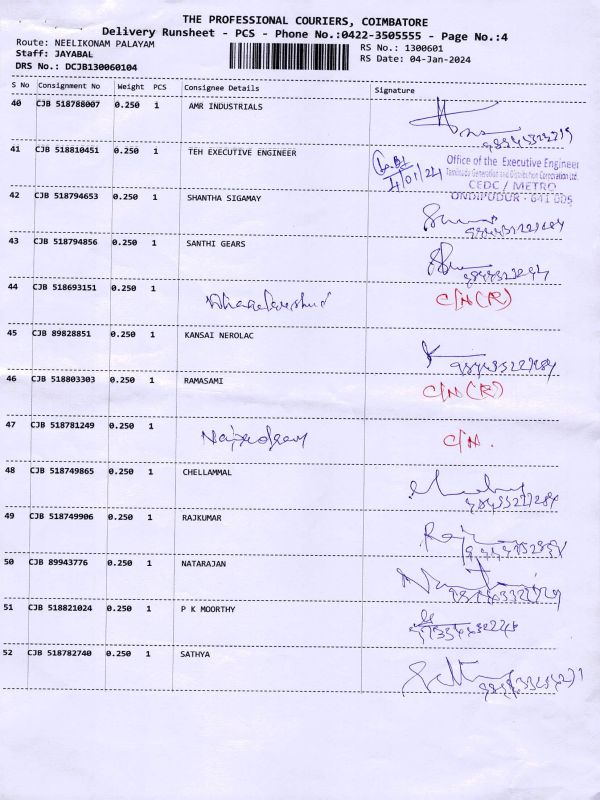 THE PROFESSIONAL COURIERS, COIMBATORE
Delivery Runsheet - PCS - Phone No.:0422-3505555 - Page No.:4
Route: NEELIKONAM PALAYAM
RS No.: 1300601
Staff: JAYABAL
RS Date: 04-Jan-2024
DRS No.: DCJB130060104
S No Consignment No Weight PCS Consignee Details Signature
40 CJB 518788007 0.250 1 AMR INDUSTRIALS
41 CJB 518810451 0.250 1 TEH EXECUTIVE ENGINEER
4/01/24
Office of the Executive Engineer
Tamilnadu Generation and Distribution Corporation Ltd.
CEDC / METRO
ONDIPUDUR - 641 005
42 CJB 518794653 0.250 1 SHANTHA SIGAMAY
43 CJB 518794856 0.250 1 SANTHI GEARS
44 CJB 518693151 0.250 1 C/N (R)
45 CJB 89828851 0.250 1 KANSAI NEROLAC
46 CJB 518803303 0.250 1 RAMASAMI C/N (R)
47 CJB 518781249 0.250 1 C/N.
48 CJB 518749865 0.250 1 CHELLAMMAL
49 CJB 518749906 0.250 1 RAJKUMAR
50 CJB 89943776 0.250 1 NATARAJAN
51 CJB 518821024 0.250 1 P K MOORTHY
52 CJB 518782740 0.250 1 SATHYA